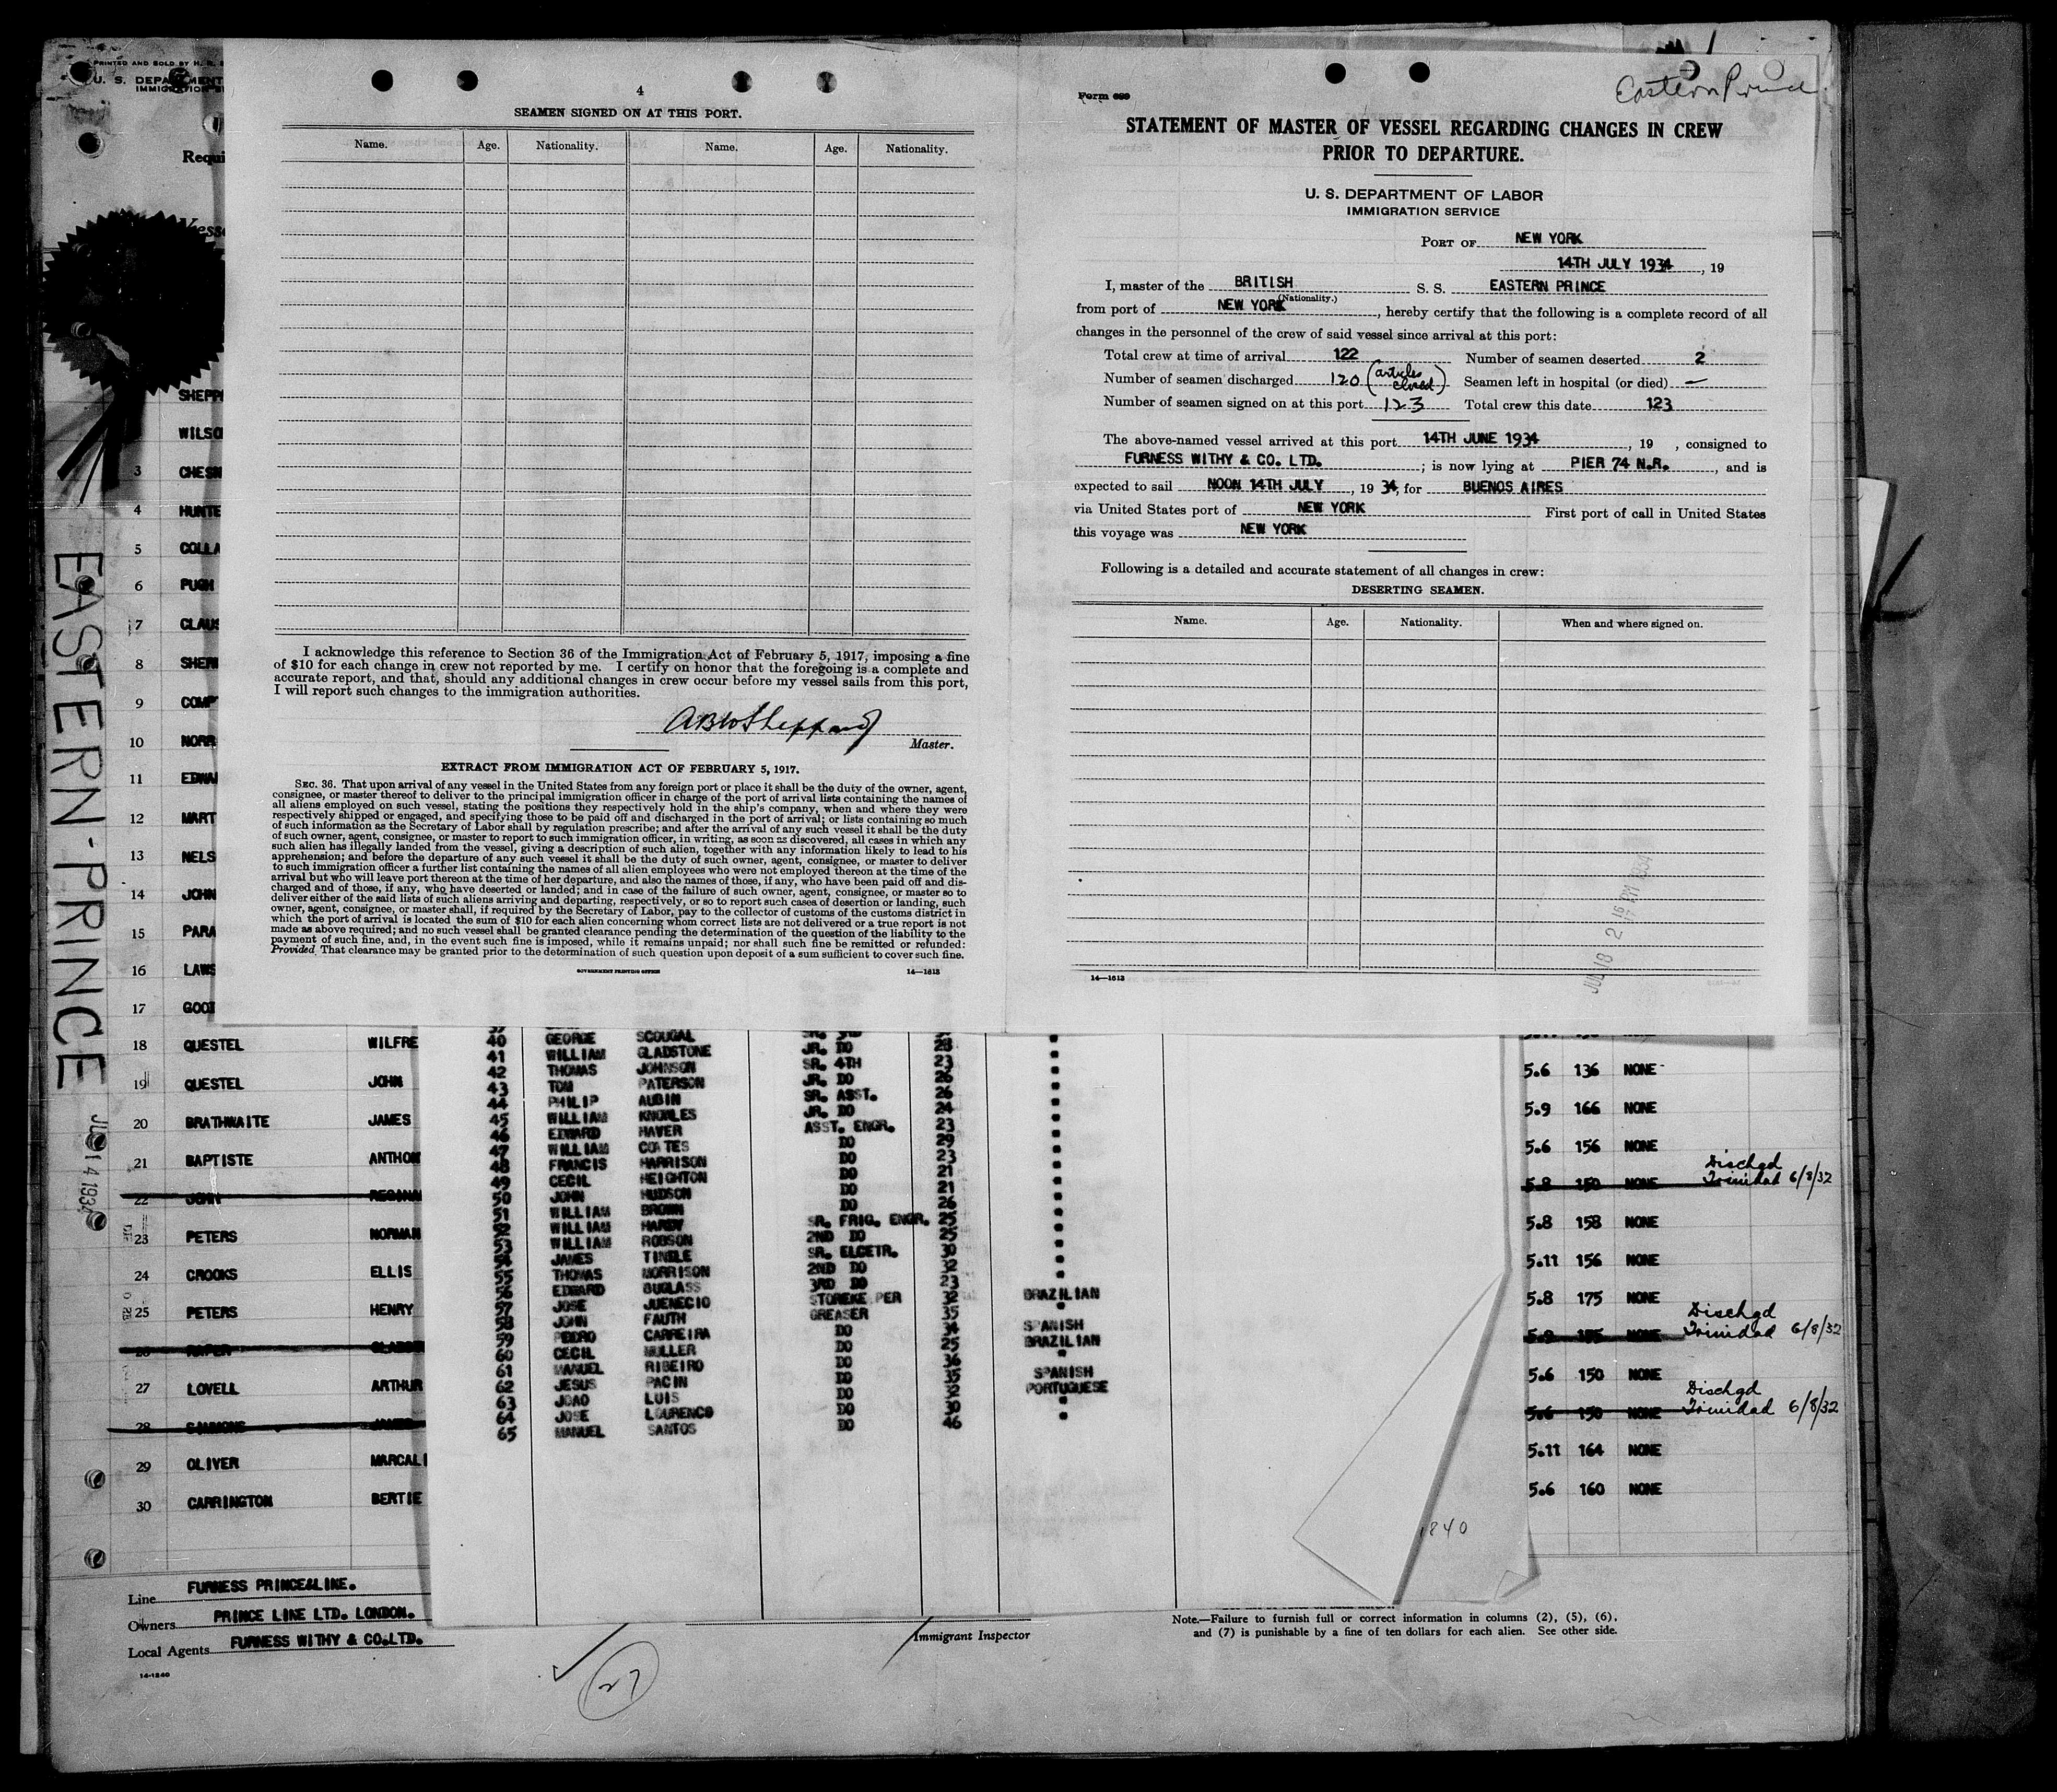 PRINTED AND SOLD BY H.
U. S. DEPARTMENT
Requi
Vesse
SHEPP
WILSO
3 CHESN
4 HUNTE
5 COLLA
6 PUGH
7 CLAUS
8 SHERW
9 COMP
10 NORR
11 EDWA
12 MART
13 NELS
14 JOHN
15 PARA
16 LAWS
17 GOOD
18 QUESTEL WILFRE
19 QUESTEL JOHN
20 BRATHWAITE JAMES
21 BAPTISTE ANTHON
22 JOHN REGINA
23 PETERS NORMAN
24 CROOKS ELLIS
25 PETERS HENRY
26 RAPER
27 LOVELL ARTHUR
28 SIMMONS JAMES
29 OLIVER MARCALI
30 CARRINGTON BERTIE
EASTERN-PRINCE
JUL 14 1934
Line FURNESS PRINCE&LINE.
Owners PRINCE LINE LTD. LONDON.
Local Agents FURNESS WITHY & CO.LTD.
14-1240
4
SEAMEN SIGNED ON AT THIS PORT.
Name. Age. Nationality. Name. Age. Nationality.
I acknowledge this reference to Section 36 of the Immigration Act of February 5, 1917, imposing a fine
of $10 for each change in crew not reported by me. I certify on honor that the foregoing is a complete and
accurate report, and that, should any additional changes in crew occur before my vessel sails from this port,
I will report such changes to the immigration authorities.
ABWSheppard
Master.
EXTRACT FROM IMMIGRATION ACT OF FEBRUARY 5, 1917.
SEC. 36. That upon arrival of any vessel in the United States from any foreign port or place it shall be the duty of the owner, agent,
consignee, or master thereof to deliver to the principal immigration officer in charge of the port of arrival lists containing the names of
all aliens employed on such vessel, stating the positions they respectively hold in the ship's company, when and where they were
respectively shipped or engaged, and specifying those to be paid off and discharged in the port of arrival; or lists containing so much
of such information as the Secretary of Labor shall by regulation prescribe; and after the arrival of any such vessel it shall be the duty
of such owner, agent, consignee, or master to report to such immigration officer, in writing, as soon as discovered, all cases in which any
such alien has illegally landed from the vessel, giving a description of such alien, together with any information likely to lead to his
apprehension; and before the departure of any such vessel it shall be the duty of such owner, agent, consignee, or master to deliver
to such immigration officer a further list containing the names of all alien employees who were not employed thereon at the time of the
arrival but who will leave port thereon at the time of her departure, and also the names of those, if any, who have been paid off and dis-
charged and of those, if any, who have deserted or landed; and in case of the failure of such owner, agent, consignee, or master so to
deliver either of the said lists of such aliens arriving and departing, respectively, or so to report such cases of desertion or landing, such
owner, agent, consignee, or master shall, if required by the Secretary of Labor, pay to the collector of customs of the customs district in
which the port of arrival is located the sum of $10 for each alien concerning whom correct lists are not delivered or a true report is not
made as above required; and no such vessel shall be granted clearance pending the determination of the question of the liability to the
payment of such fine, and, in the event such fine is imposed, while it remains unpaid; nor shall such fine be remitted or refunded:
Provided That clearance may be granted prior to the determination of such question upon deposit of a sum sufficient to cover such fine.
GOVERNMENT PRINTING OFFICE 14—1613
Eastern Prince
Form 689
STATEMENT OF MASTER OF VESSEL REGARDING CHANGES IN CREW
PRIOR TO DEPARTURE.
U. S. DEPARTMENT OF LABOR
IMMIGRATION SERVICE
PORT OF NEW YORK
14TH JULY 1934, 19
I, master of the BRITISH S. S. EASTERN PRINCE
(Nationality.)
from port of NEW YORK, hereby certify that the following is a complete record of all
changes in the personnel of the crew of said vessel since arrival at this port:
Total crew at time of arrival 122 Number of seamen deserted 2
Number of seamen discharged 120 (articles closed) Seamen left in hospital (or died) —
Number of seamen signed on at this port 123 Total crew this date 123
The above-named vessel arrived at this port 14TH JUNE 1934, 19 , consigned to
FURNESS WITHY & CO. LTD. ; is now lying at PIER 74 N.R. , and is
expected to sail NOON 14TH JULY , 19 34, for BUENOS AIRES
via United States port of NEW YORK First port of call in United States
this voyage was NEW YORK
Following is a detailed and accurate statement of all changes in crew:
DESERTING SEAMEN.
Name. Age. Nationality. When and where signed on.
JUL 18 2 16 PM 1934
14—1613
39
40 GEORGE SCOUGAL SR. 3RD 28 "
41 WILLIAM GLADSTONE JR. DO 23 "
42 THOMAS JOHNSON SR. 4TH 23 "
43 TOM PATERSON JR. DO 26 "
44 PHILIP AUBIN SR. ASST. 26 "
45 WILLIAM KNOWLES JR. DO 24 "
46 EDWARD HAVER ASST. ENGR. 23 "
47 WILLIAM COATES DO 29 "
48 FRANCIS HARRISON DO 23 "
49 CECIL HEIGHTON DO 21 "
50 JOHN HUDSON DO 21 "
51 WILLIAM BROWN DO 26 "
52 WILLIAM HARDY SR. FRIG. ENGR. 25 "
53 WILLIAM ROBSON 2ND DO 25 "
54 JAMES TINDLE SR. ELCETR. 30 "
55 THOMAS MORRISON 2ND DO 32 "
56 EDWARD BUGLASS 3RD DO 23 "
57 JOSE JUENECIO STOREKE PER 32 BRAZILIAN
58 JOHN FAUTH GREASER 35 "
59 PEDRO CARREIRA DO 34 SPANISH
60 CECIL MULLER DO 25 BRAZILIAN
61 MANUEL RIBEIRO DO 36 "
62 JESUS PACIN DO 35 SPANISH
63 JOAO LUIS DO 32 PORTUGUESE
64 JOSE LOURENCO DO 30 "
65 MANUEL SANTOS DO 46 "
5.6 136 NONE
5.9 166 NONE
5.6 156 NONE
5.8 150 NONE Dischgd Trinidad 6/8/32
5.8 158 NONE
5.11 156 NONE
5.8 175 NONE
5.9 175 NONE Dischgd Trinidad 6/8/32
5.6 150 NONE
5.6 150 NONE Dischgd Trinidad 6/8/32
5.11 164 NONE
5.6 160 NONE
1840
Immigrant Inspector
Note.—Failure to furnish full or correct information in columns (2), (5), (6),
and (7) is punishable by a fine of ten dollars for each alien. See other side.
27